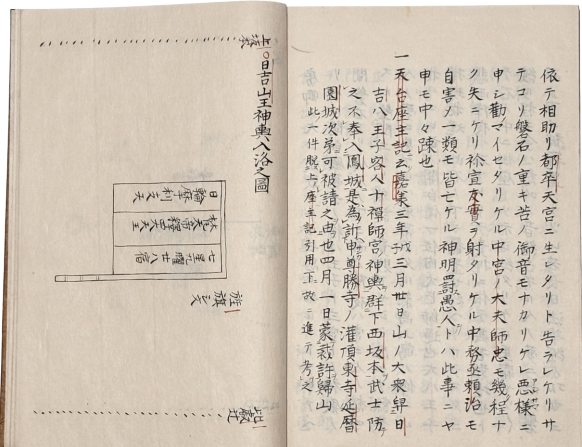 依テ相助リ都卒天宮ニ生レタリト告ラレケリサ
テコソ盤石ノ重キ苦ノ御音モナカリケレ悪様ニ
申シ勸マイセタリケル中宮ノ大夫師忠モ幾程ナ
ク失ニケリ祢宣友實ヲ射タリケル中務丞頼治モ
自害ノ一類モ皆亡ケル神明罸愚人トハ此事ニヤ
申モ中々疎也
一天台座主記云嘉禎三年三月廿日山ノ大衆舁日
吉八王子客人十禅師宮神輿群下西坂本武士防
之不奉入鳳城是為訴申尊勝寺ノ灌頂東寺延暦
園城次第可被請之由也四月一日蒙裁許歸山
此一件脱上座主記引用下故ニ進テ考之
上洛
日吉山王神輿入洛之圖
日輪摩利支天
梵天帝釋四大天王
七星九曜廿八宿
旌旗之文
山獻辻